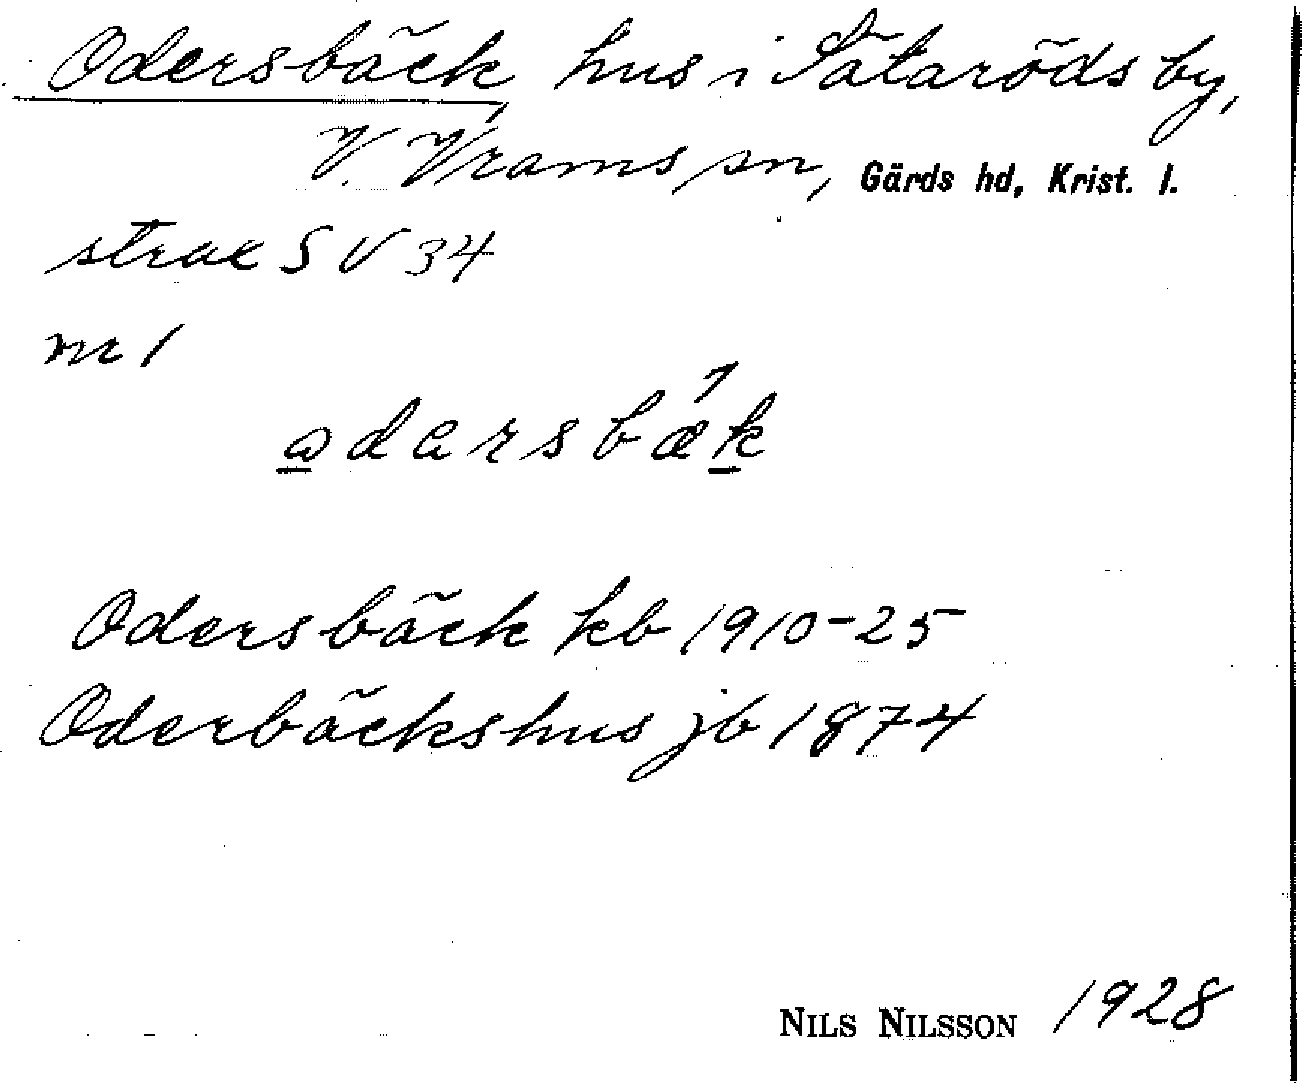 Odersbäck, hus i Sätaröds by,
V. Vrams sn, Gärds hd, Krist. l.
strax S V 34
nr 1
odarsbæk
Odersbäck kb 1910-25
Oderbäckshus jb 1874
NILS NILSSON 1928